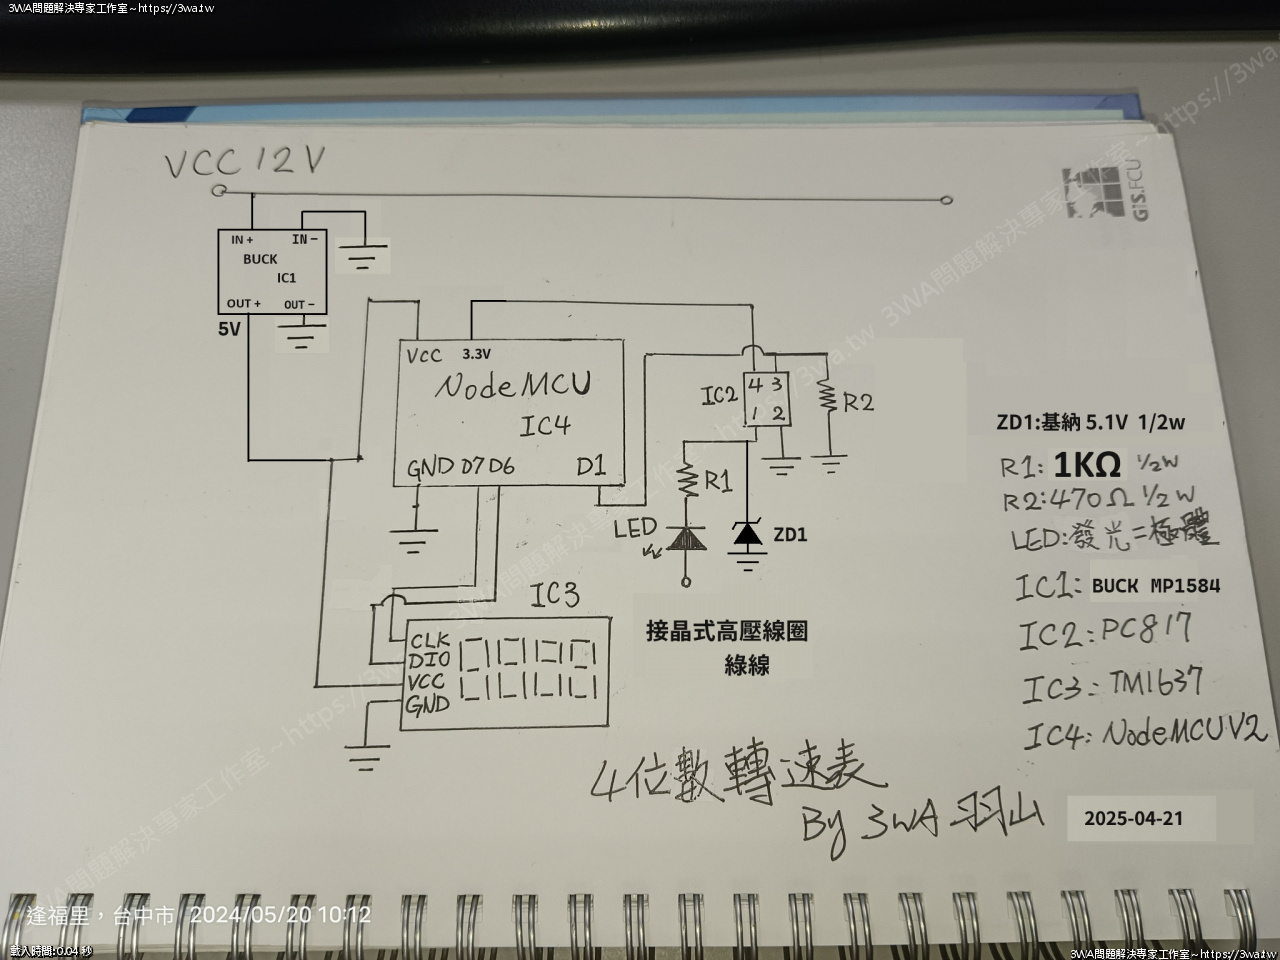 3WA問題解決專家工作室~https://3wa.tw
VCC 12V
GIS.FCU
IN + IN −
BUCK
IC1
OUT + OUT −
5V
VCC 3.3V
NodeMCU
IC4
GND D7 D6 D1
IC2
4 3
1 2
R2
R1
LED
ZD1
IC3
CLK
DIO
VCC
GND
接晶式高壓線圈
綠線
ZD1:基納 5.1V 1/2w
R1: 1KΩ 1/2W
R2:470Ω 1/2W
LED:發光二極體
IC1: BUCK MP1584
IC2:PC817
IC3:TM1637
IC4:NodeMCUV2
4位數轉速表
By 3WA 羽山
2025-04-21
3WA問題解決專家工作室~https://3wa.tw
3WA問題解決專家工作室~https://3wa.tw
逢福里，台中市 2024/05/20 10:12
載入時間:0.04 秒
3WA問題解決專家工作室~https://3wa.tw